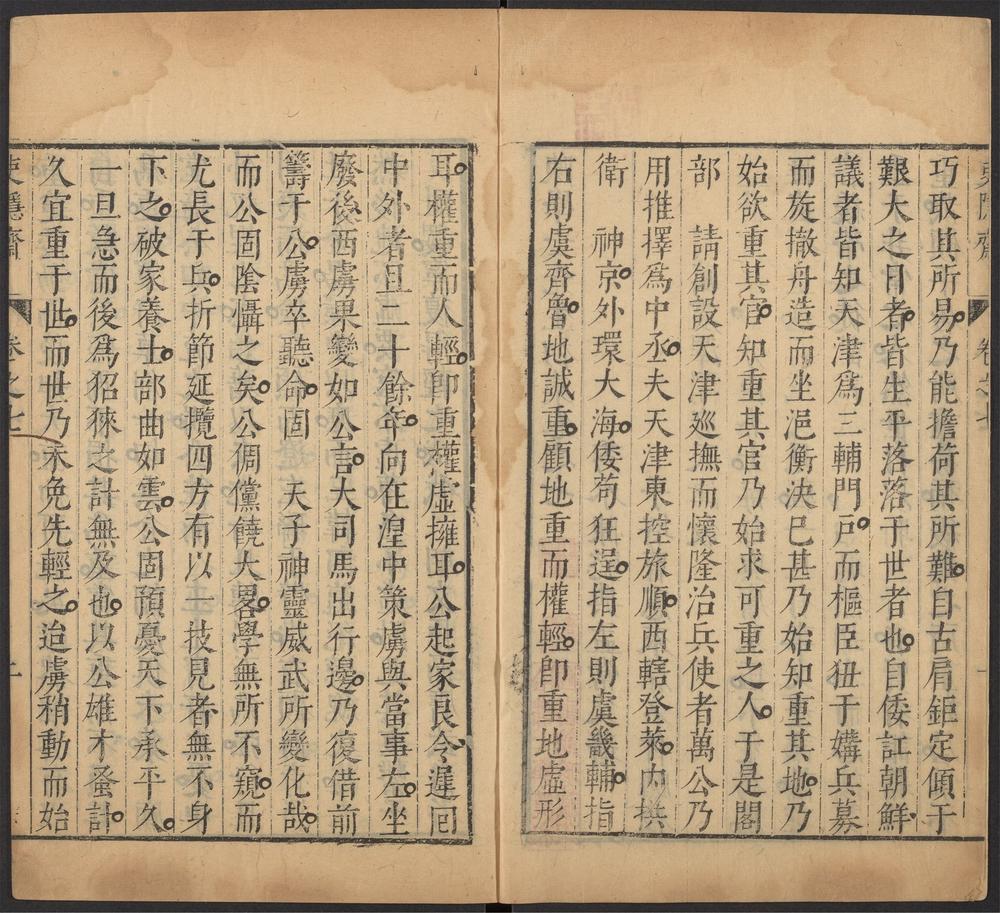 巧取其所易乃能擔荷其所難自古肩鉅定傾于
艱大之日者皆生平落落于世者也自倭訌朝鮮
議者皆知天津爲三輔門戶而樞臣狃于媾兵募
而旋撤舟造而坐浥衡決已甚乃始知重其地乃
始欲重其官知重其官乃始求可重之人于是閣
部　請創設天津巡撫而懷隆治兵使者萬公乃
用推擇爲中丞夫天津東控旅順西轄登萊內拱
衛　神京外環大海倭苟狂逞指左則虞畿輔指
右則虞齊魯地誠重顧地重而權輕卽重地虛形
耳權重而人輕卽重權虛擁耳公起家良令遲回
中外者且二十餘年向在湟中策虜與當事左坐
廢後西虜果變如公言大司馬出行邊乃復借前
籌于公虜卒聽命固　天子神靈威武所變化哉
而公固陰懾之矣公倜儻饒大畧學無所不窺而
尤長于兵折節延攬四方有以一技見者無不身
下之破家養士部曲如雲公固預憂天下承平久
一旦急而後爲招徠之計無及也以公雄才蚤計
久宜重于世而世乃未免先輕之迨虜稍動而始
卷之七